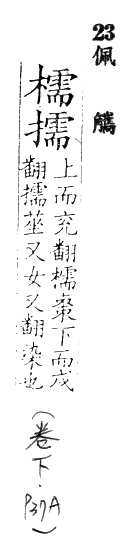 23
佩觿
檽擩
上而兖翻檽棗下而戍
翻擩莝又女又翻染也
（卷下·P37A）